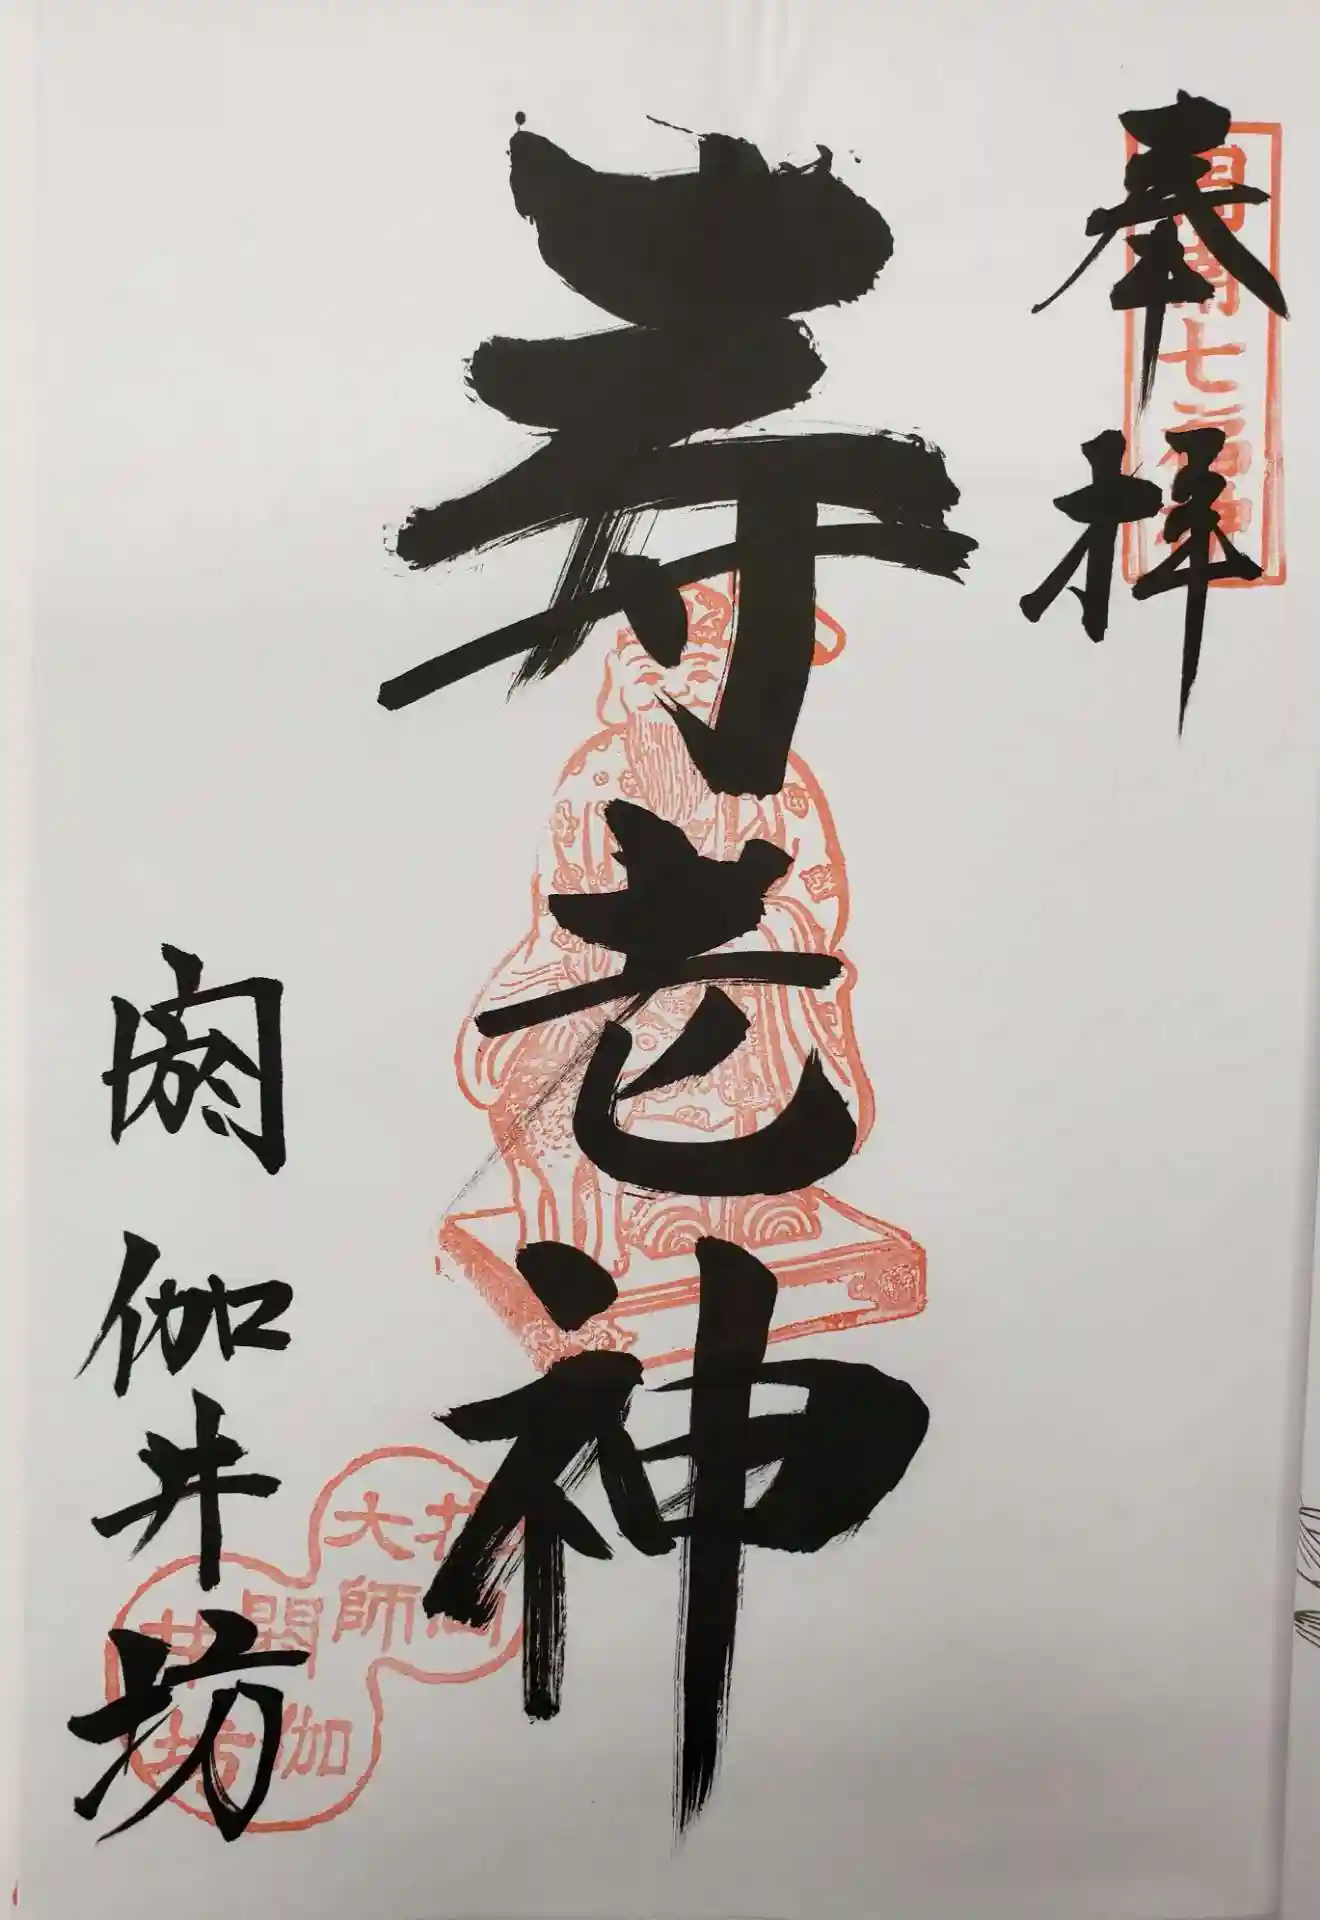 奉拝
寿老神
閼伽井坊
大師
閼伽井坊